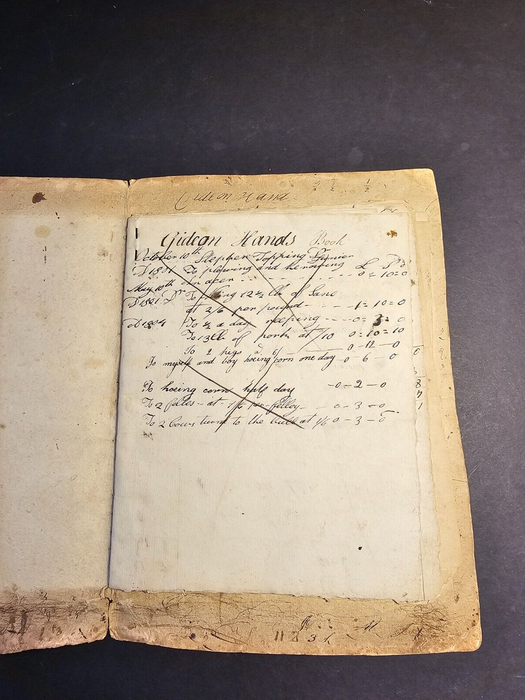 Gideon Hand
Gideon Hands Book
October 10th Stephen Topping Dr
D 1801 To plowing and harrowing L S D
an acer - - - 0 = 10 = 0
May 10th
D 1801 Dr To 12½ lb of
at 2/6 per pound - - 1 = 10 = 0
d 1804 To ½ a day reeping - - 0 = 3 = 0
To 13 lb of pork at /10 0 = 10 = 10
To 2 0 - 11 - 0
To myself and boy hoeing corn one day - 0 - 6 - 0
To hoeing corn half day - 0 = 2 - 0
To 2 at 1/6 per - 0 - 3 - 0
To 2 Cows turnd to the bull at 1/6 0 - 3 - 0
11 2 3